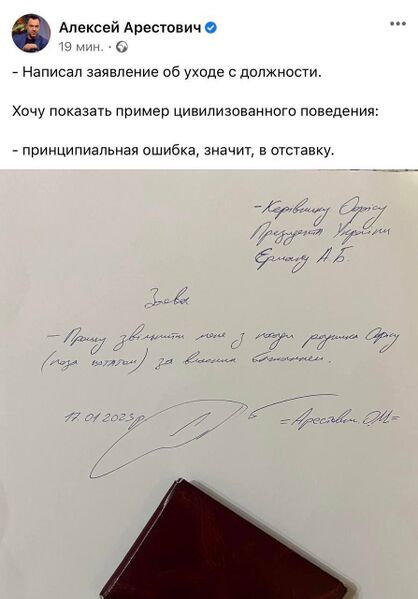 Алексей Арестович
19 мин.
- Написал заявление об уходе с должности.
Хочу показать пример цивилизованного поведения:
- принципиальная ошибка, значит, в отставку.
- Керівнику Офісу
Президента України
Єрмаку А.Б.
Заява
- Прошу звільнити мене з посади радника Офісу
(поза штатом) за власним бажанням.
17.01.2023р =Арестович О.М=